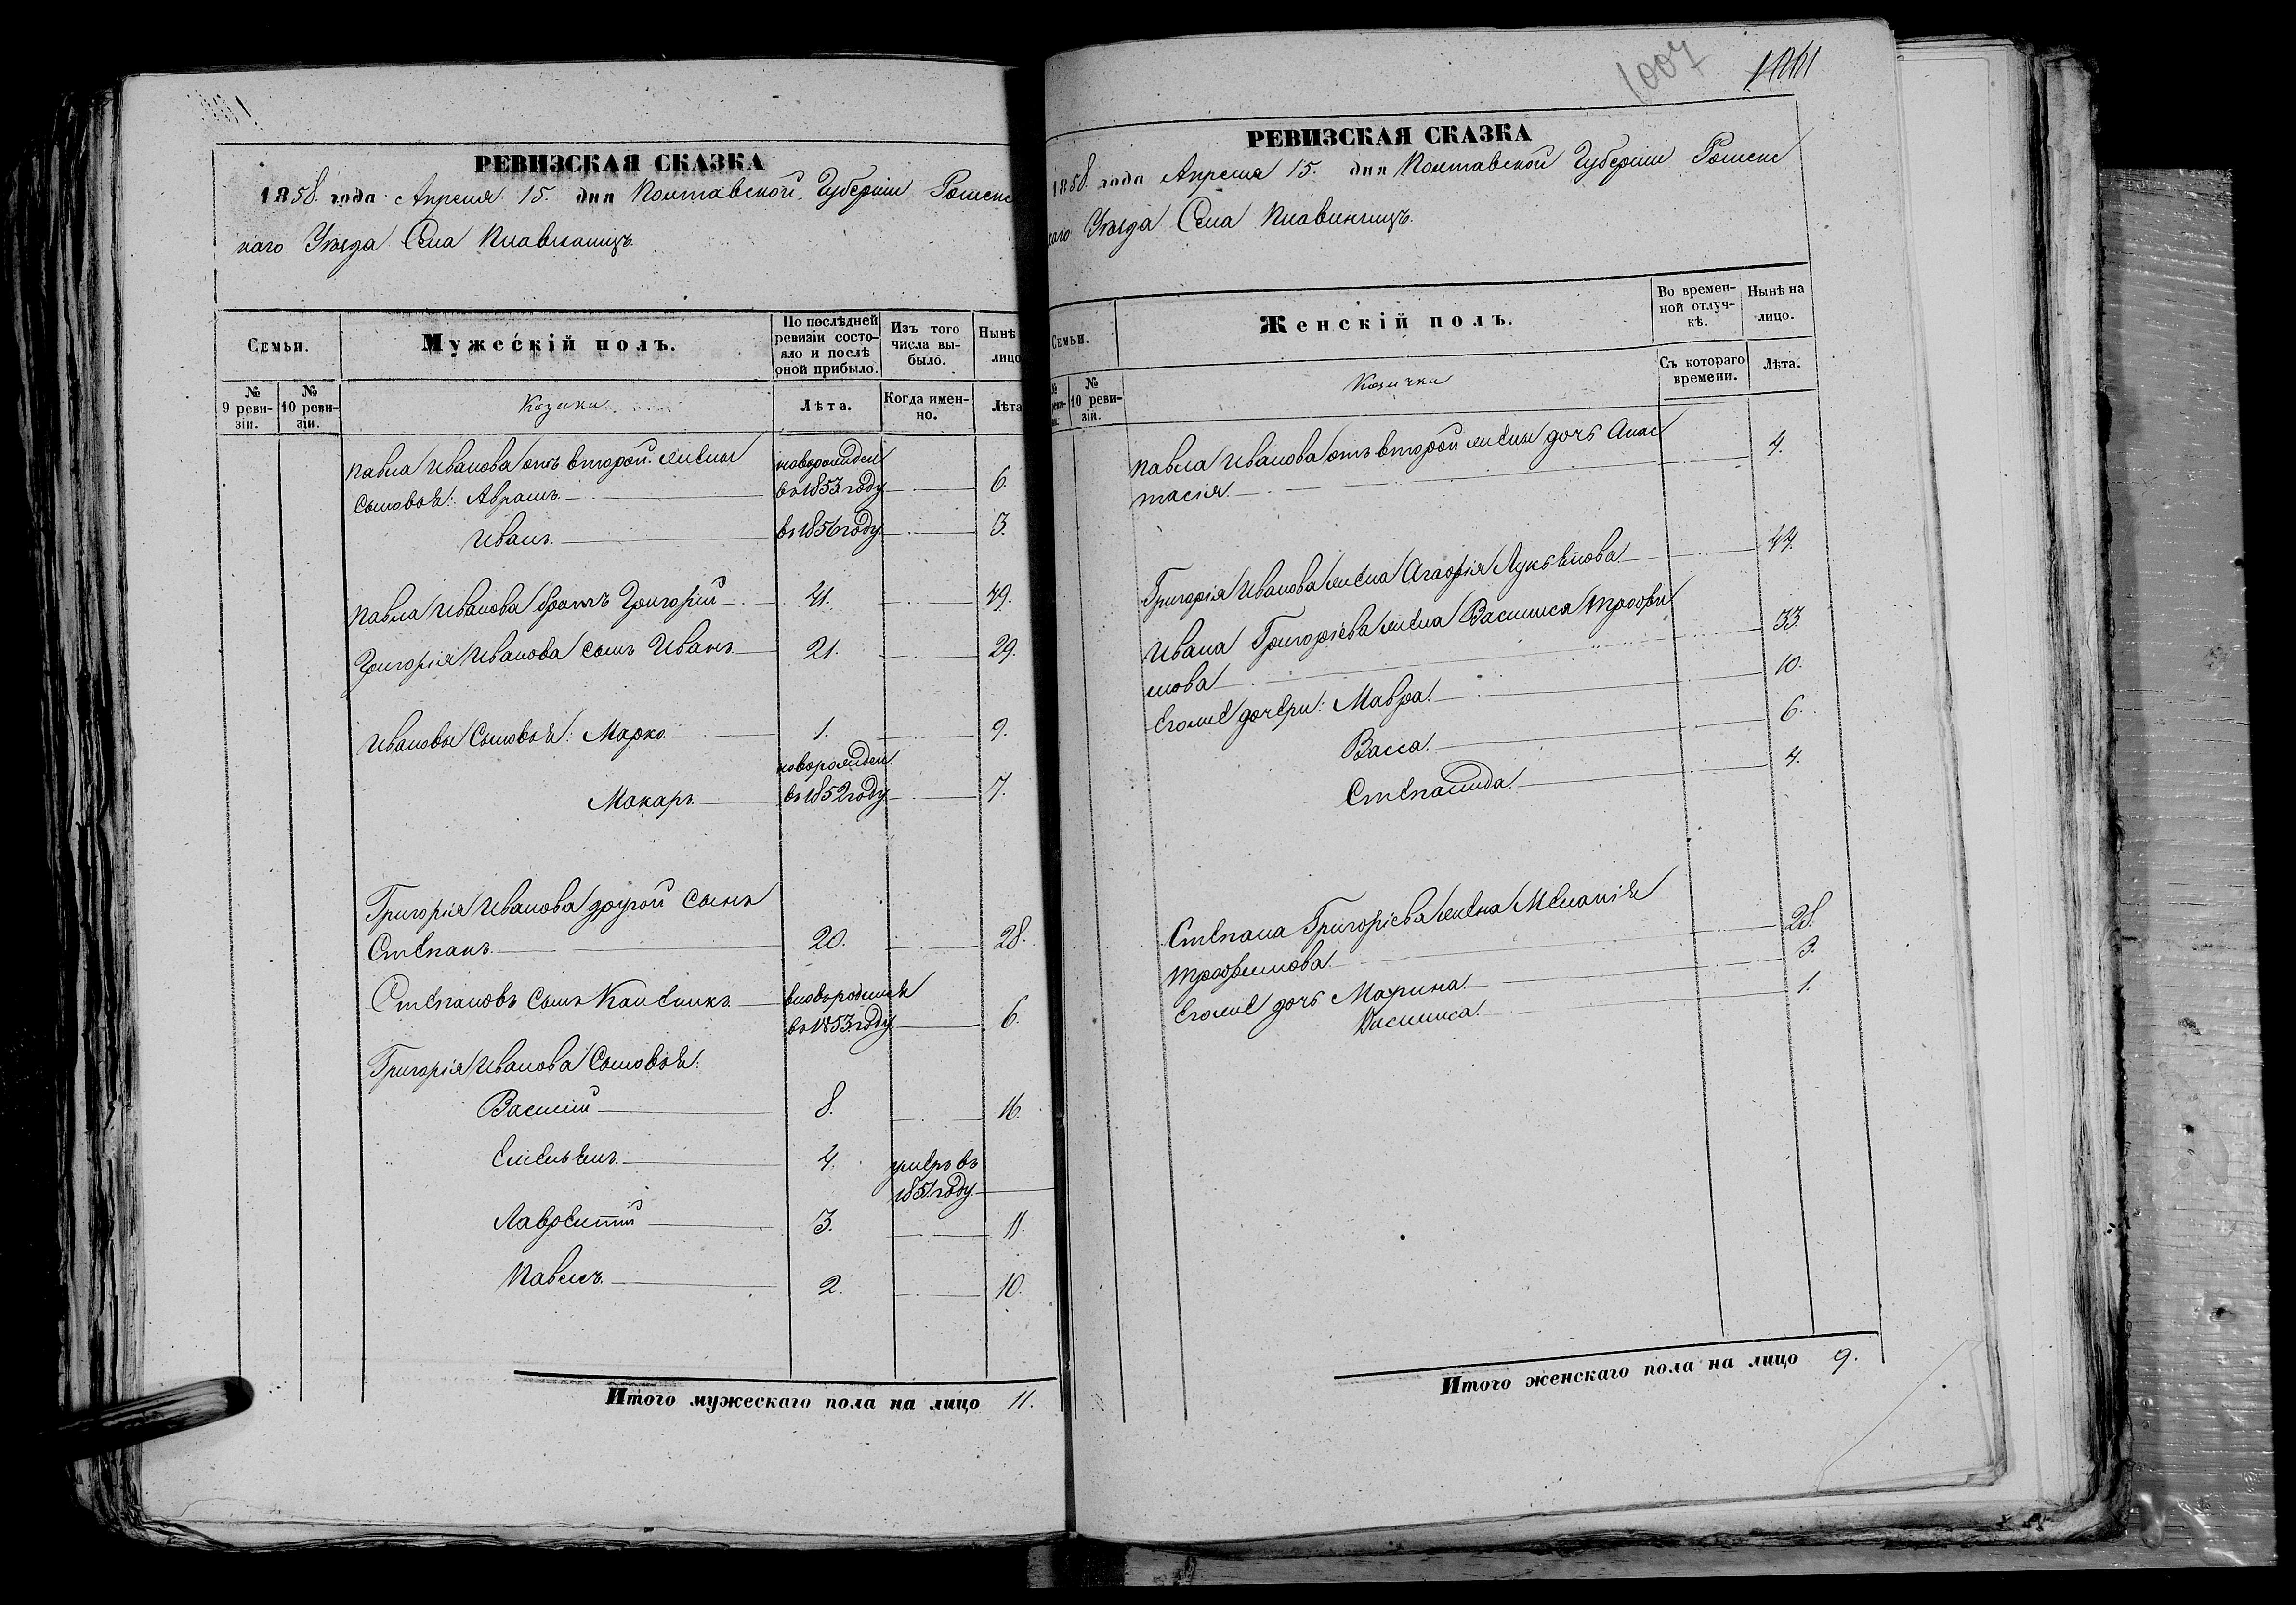 РЕВИЗСКАЯ СКАЗКА
1858. года Апреля 15. дня Полтавской Губерніи Роменс
каго Уѣзда Села Плавинищъ.
Семьи.
Мужескій полъ.
По послѣдней ревизіи состояло и послѣ оной прибыло.
Изъ того числа выбыло.
Нынѣ
лицо
№ 9 ревизіи.
№ 10 ревизіи.
Козаки
Лѣта.
Когда именно.
Лѣта
Павла Иванова отъ второй жены новорожден
сыновья: Аврамъ. въ 1853 году 6.
Иванъ. въ 1856 году 3.
Павла Иванова братъ Григорій 41. 49.
Григорія Иванова сынъ Иванъ 21. 29.
Ивановы сыновья: Марко 1. 9.
новорожден.
Макаръ въ 1852 году 7.
Григорія Иванова другой сынъ
Степанъ. 20. 28.
Степановъ сынъ Калиникъ вновьродился
въ 1853 году 6.
Григорія Иванова сыновья:
Василій 8. 16.
Емельянъ. 4. умеръ въ
1851 году
Лаврентій 3. 11.
Павелъ. 2. 10.
Итого мужескаго пола на лицо 11.
1007
РЕВИЗСКАЯ СКАЗКА
1858. года Апреля 15. дня Полтавской Губерніи Роменс
каго Уѣзда Села Плавинищъ.
Семьи.
Женскій полъ.
Во временной отлучкѣ.
Нынѣ на лицо.
№ 10 ревизіи.
Козачки
Съ котораго времени.
Лѣта.
Павла Иванова отъ второй жены дочь Анас
тасія. 4.
Григорія Иванова жена Агафія Лукьянова 44.
Ивана Григорьева жена Василиса Трофи
мова 33.
Егоже дочери: Мавра. 10.
Васса. 6.
Степанида. 4.
Степана Григорьева жена Меланія
Трофимова. 28.
Егоже дочь Марина 3.
1.
Итого женскаго пола на лицо 9.